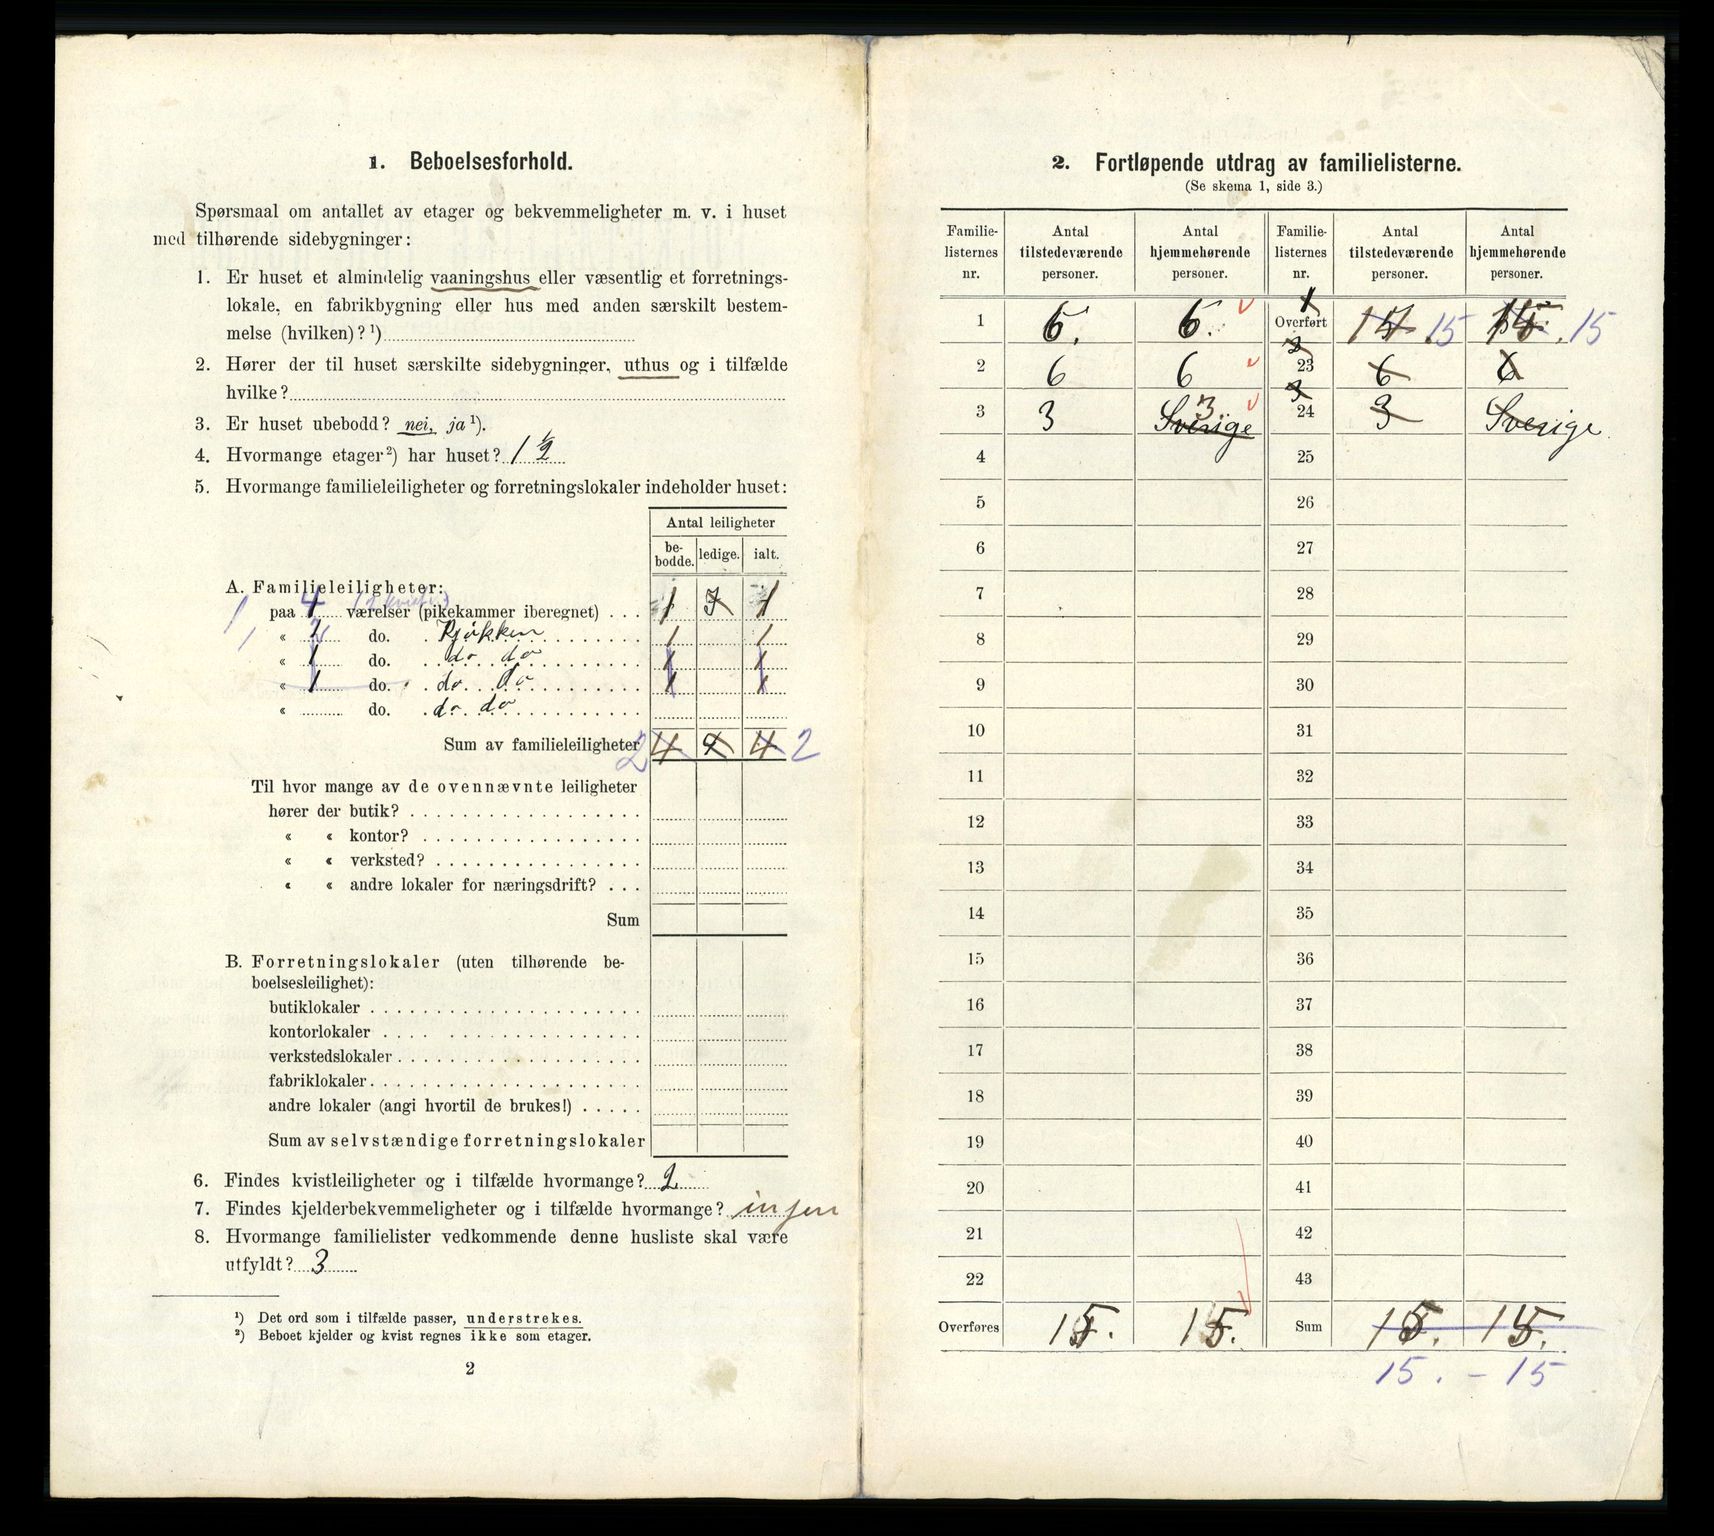 1. Beboelsesforhold.
Spørsmaal om antallet av etager og bekvemmeligheter m. v. i huset
med tilhørende sidebygninger:
1. Er huset et almindelig vaaningshus eller væsentlig et forretnings-
lokale, en fabrikbygning eller hus med anden særskilt bestem-
melse (hvilken)? ¹)
2. Hører der til huset særskilte sidebygninger, uthus og i tilfælde
hvilke?
3. Er huset ubebodd? nei, ja ¹).
4. Hvormange etager ²) har huset? 1 ½
5. Hvormange familieleiligheter og forretningslokaler indeholder huset:
Antal leiligheter
be-
bodde. ledige. ialt.
A. Familieleiligheter:
1 paa 4 værelser (pikekammer iberegnet) . . . 1 3 1
1 « 2 do. Kjøkken 1 1
« 1 do. do do 1 1
« 1 do. do do 1 1
« do. do do
Sum av familieleiligheter 2 4 4 2
Til hvor mange av de ovennævnte leiligheter
hører der butik?
« « kontor?
« « verksted?
« « andre lokaler for næringsdrift?
Sum
B. Forretningslokaler (uten tilhørende be-
boelsesleilighet):
butiklokaler
kontorlokaler
verkstedslokaler
fabriklokaler
andre lokaler (angi hvortil de brukes!)
Sum av selvstændige forretningslokaler
6. Findes kvistleiligheter og i tilfælde hvormange? 2
7. Findes kjelderbekvemmeligheter og i tilfælde hvormange? injen
8. Hvormange familielister vedkommende denne husliste skal være
utfyldt? 3
¹) Det ord som i tilfælde passer, understrekes.
²) Beboet kjelder og kvist regnes ikke som etager.
2
2. Fortløpende utdrag av familielisterne.
(Se skema 1, side 3.)
Familie-
listernes
nr. Antal
tilstedeværende
personer. Antal
hjemmehørende
personer. Familie-
listernes
nr. Antal
tilstedeværende
personer. Antal
hjemmehørende
personer.
1 6. 6. 1 Overført 14 15 15. 15
2 6 6 2 23 6 6
3 3 3 Sverige 3 24 3 Sverige
4 25
5 26
6 27
7 28
8 29
9 30
10 31
11 32
12 33
13 34
14 35
15 36
16 37
17 38
18 39
19 40
20 41
21 42
22 43
Overføres 15. 15. Sum 15. 15.
15. - 15